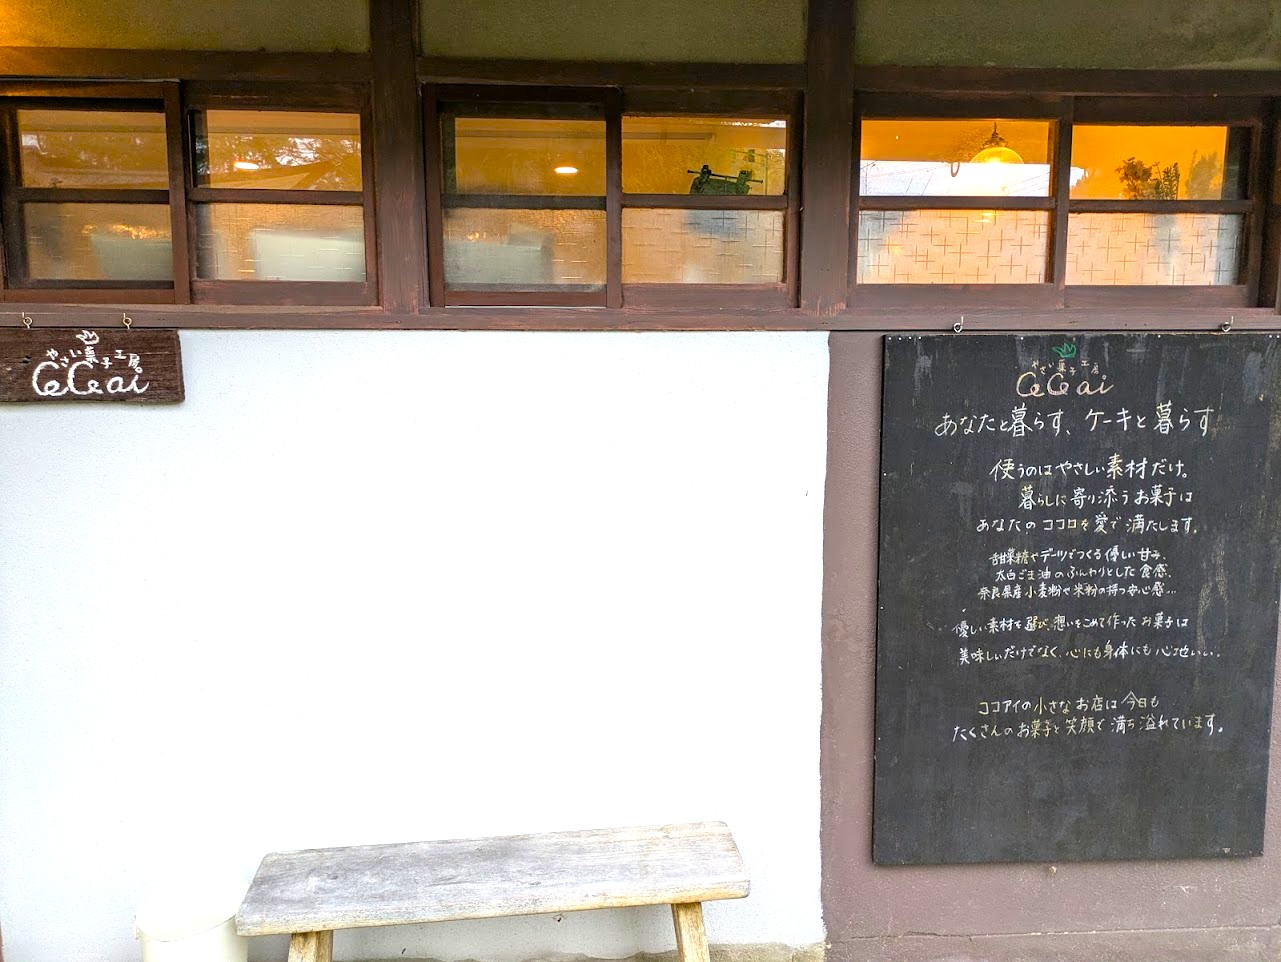 やさい菓子工房
CoCo ai
やさい菓子工房
CoCo ai
あなたと暮らす、ケーキと暮らす
使うのはやさしい素材だけ。
暮らしに寄り添うお菓子は
あなたのココロを愛で満たします。
甜菜糖やデーツでつくる優しい甘み、
太白ごま油のふんわりとした食感、
奈良県産小麦粉や米粉の持つ安心感…
優しい素材を選び、想いをこめて作ったお菓子は
美味しいだけでなく、心にも身体にも心地いい。
ココアイの小さなお店は今日も
たくさんのお菓子と笑顔で満ち溢れています。